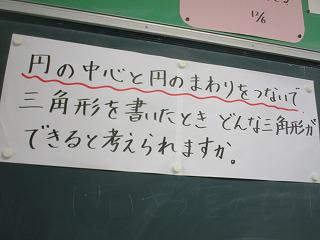 12/6
円の中心と円のまわりをつないで
三角形を書いたとき どんな三角形が
できると考えられますか。